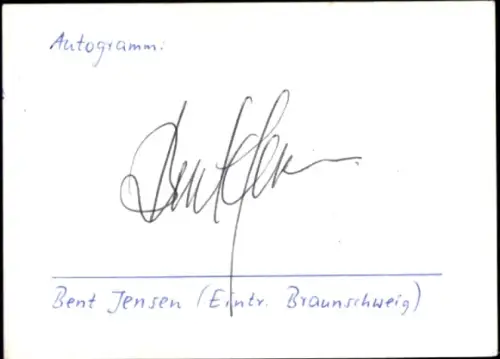 Autogramm:
Bent Jensen
Bent Jensen (Eintr. Braunschweig)